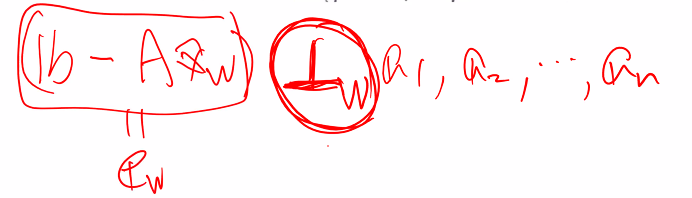 (b - A x̂_W) ⊥_W a_1, a_2, ..., a_n
||
e_W